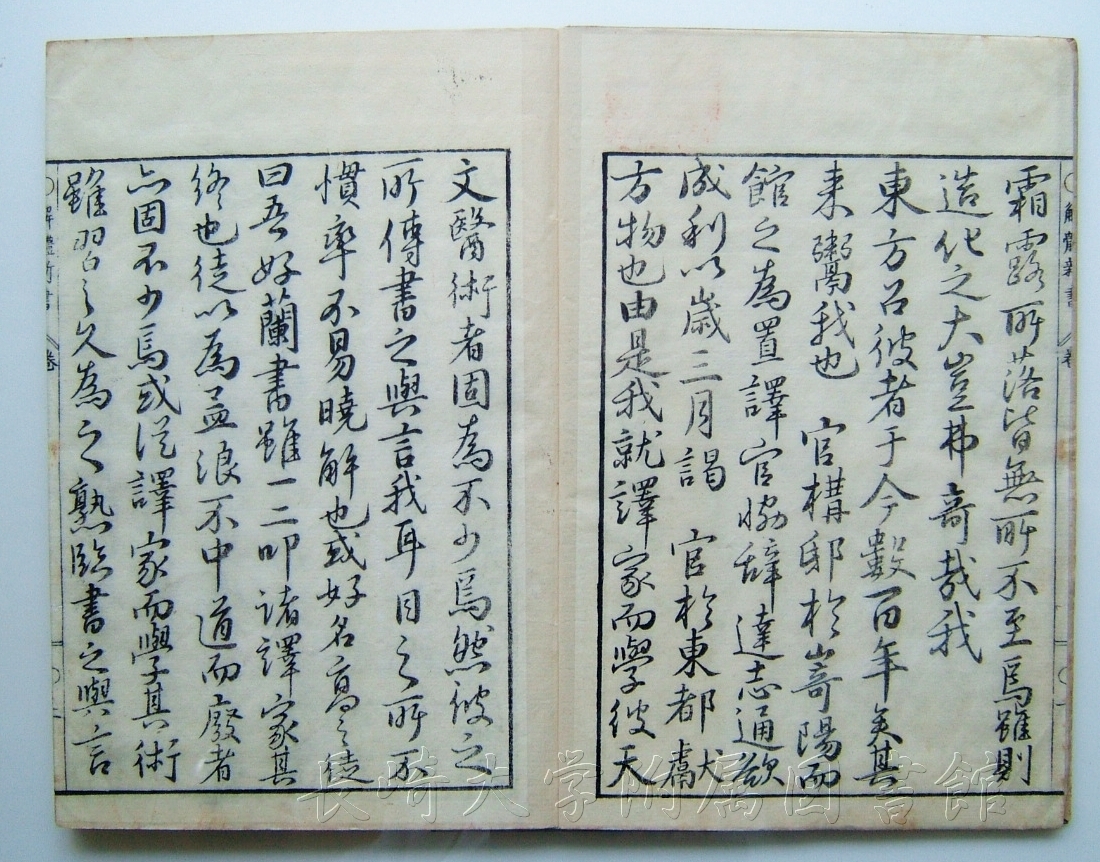 解體新書 卷
霜露所落皆無所不至焉雖則
造化之大豈弗奇哉我
東方召彼者于今數百年矣其
来鬻我也 官構邸於嵜陽而
館之為置譯官惱辭達志通欲
成利以歲三月謁 官於東都犬舊
方物也由是我就譯家而學彼天
文醫術者固為不少焉然彼之
所傳書之與言我耳目之所不
慣率不易曉解也或好名高之徒
曰吾好蘭書雖一二叩諸譯家其
終也徒以為孟浪不中道而廢者
亦固不少焉或從譯家而學其術
雖習之久為之熟臨書之與言
解體新書 卷
長崎大学附属図書館